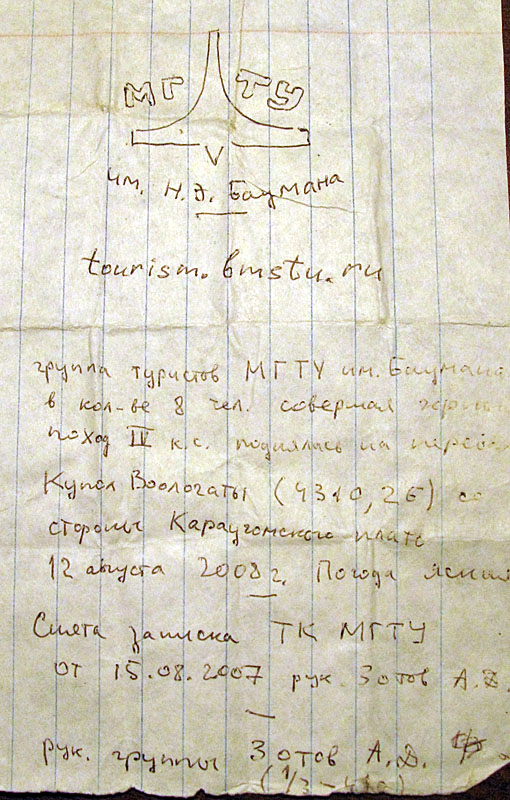 МГТУ
им. Н.Э. Баумана
tourism.bmstu.ru
группа туристов МГТУ им. Баумана
в кол-ве 8 чел. совершая горный
поход IV к.с. поднялись на перевал
Купол Воологаты (4310, 2Б) со
стороны Караугомского плато
12 августа 2008 г. Погода ясная
Снята записка ТК МГТУ
от 15.08.2007 рук. Зотов А.Д.
рук. группы Зотов А.Д.